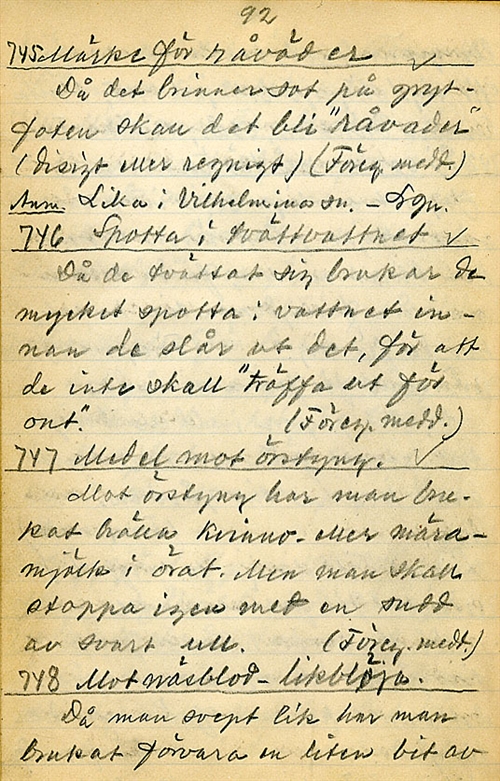 92
745 Märke för råväder ✓
Då det brinner sot på gryt-
foten skall det bli "råväder"
(disigt eller regnigt) (Föreg. medd.)
Anm. Lika i Vilhelmina sn. -
746 Spotta i tvättvattnet ✓
Då de tvättat sig brukar de
mycket spotta i vattnet in-
nan de slår ut det, för att
de inte skall "träffa ut för
ont". (Föreg. medd.)
747 Medel mot örstyng. ✓
Mot örstyng har man bru-
kat hälla kvinno- eller mära-
mjölk i örat. Men man skall
stoppa igen med en sudd
av svart ull. (Föreg. medd.)
748 Mot näsblod - likblöja.
Då man svept lik har man
brukat förvara en liten bit av